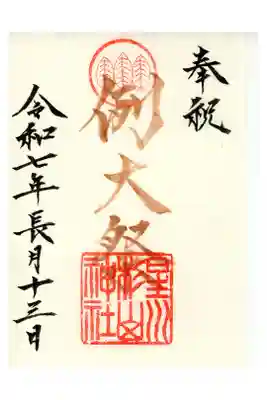 奉祝
例大祭
星川
杉山
神社
令和七年長月十三日